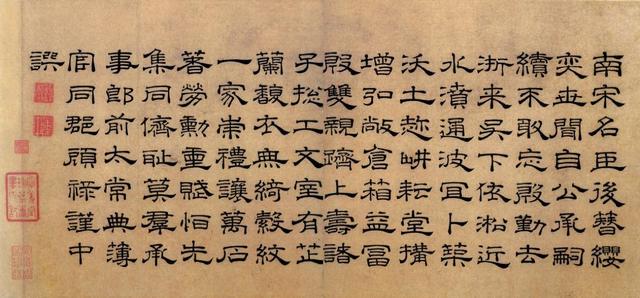 南宋名臣後簪纓
奕世聞自公承嗣
續不敢忘殷勤去
浙来吳下依淞近
水濆通波冝卜築
沃土趂畊耘堂構
增弘敞倉箱益冨
殷雙親躋上壽諸
子揔工文室有芷
蘭馥衣無綺縠紋
一家崇禮讓萬石
著勞勳重賦怕先
集同儕恥莫羣承
事郎前太常典簿
官同郡顧祿謹中
譔